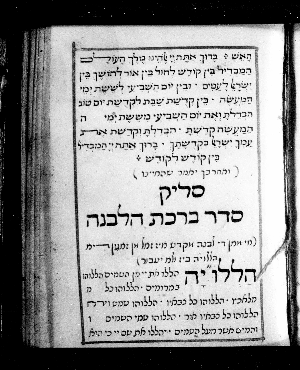 האש ׃ ברוך אתה יי אלהינו מלך העול
המבדיל בין קודש לחול בין אור לחושך בין
ישראל לעמים ׃ ובין יום השביעי לששת ימי
המעשה ׃ בין קדושת שבת לקדושת יום טוב
הבדלת ואת יום השביעי מששת ימי ה
המעשה קדשת ׃ הבדלת וקדשת את
עמך ישראל בקדשתך ׃ ברוך אתה יי המבדיל
בין קודש לקודש ׃
סליק
סדר ברכת הלבנה
הללויה הללו את יי מן השמים הללוהו
במרומים ׃ הללוהו כל מ
מלאכיו הללוהו כל צבאיו ׃ הללוהו שמש וירח
הללוהו כל כוכבי אור ׃ הללוהו שמי השמים ו
והמים אשר מעל השמים ׃ יהללו את שם יי כי הוא